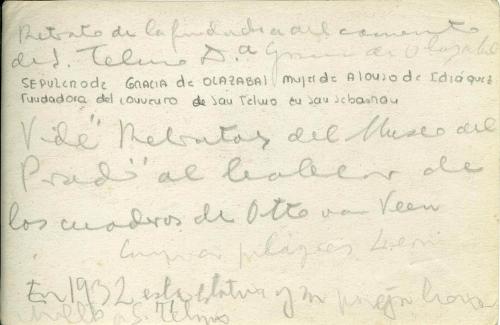 Retrato de la fundadora del convento
de S. Telmo D.ª Gracia de Olazabal
SEPULCRO de GRACIA de OLAZABAL mujer de Alonso de Idiaquez
fundadora del convento de San Telmo en San Sebastian
Vide "Retratos del Museo del
Prado" al hablar de
los cuadros de Otto van Veen
En 1932 esta estatua y su pareja
a S. Telmo